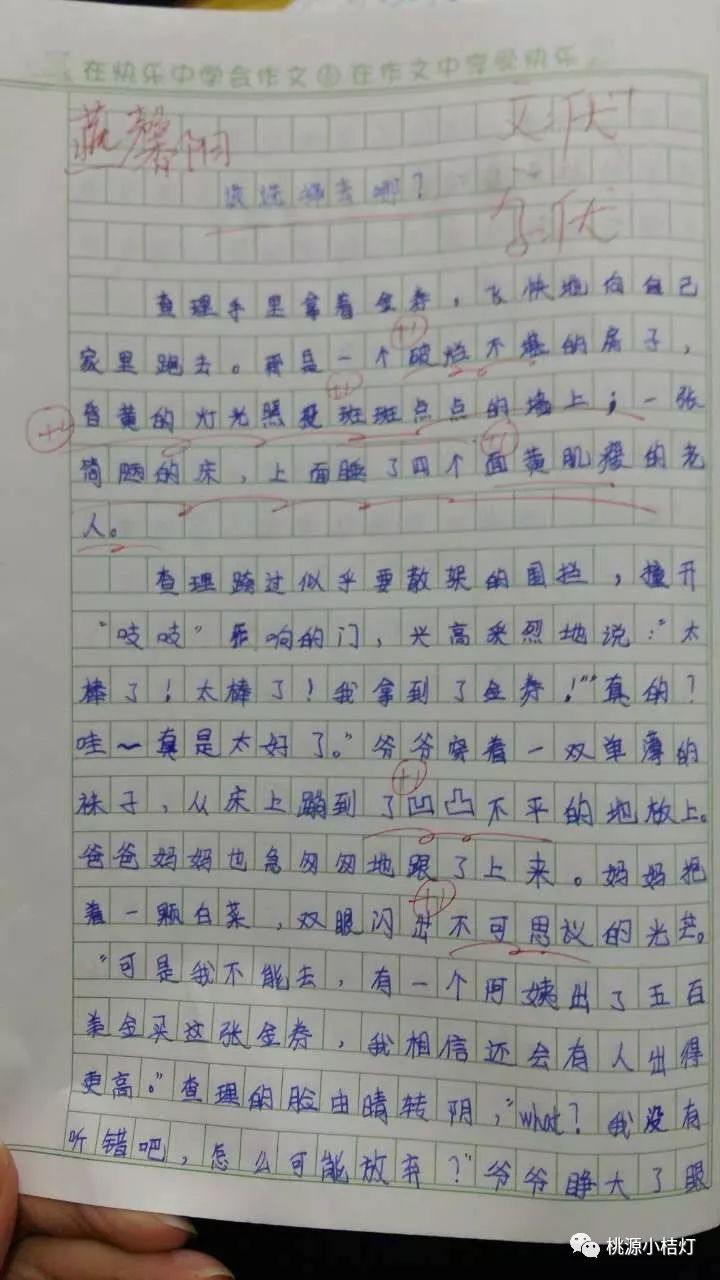 在快乐中学会作文 在作文中享受快乐
馨阳
哪？
查理手里拿着金券，飞快地向自己
家里跑去。那是一个破烂不堪的房子，
昏黄的灯光照在斑斑点点的墙上；一张
简陋的床，上面睡了四个面黄肌瘦的老
人。
查理跨过似乎要散架的围拦，撞开
“吱吱”乖响的门，兴高采烈地说：“太
棒了！太棒了！我拿到了金券！”“真的？
哇～真是太好了。”爷爷穿着一双单薄的
袜子，从床上蹦到了凹凸不平的地放上。
爸爸妈妈也急匆匆地跟了上来。妈妈把
着一颗白菜，双眼闪出不可思议的光芒。
“可是我不能去，有一个阿姨出了五百
美金买这张金券，我相信还会有人出得
更高。”查理的脸由晴转阴，“what？我没有
听错吧，怎么可能放弃？”爷爷睁大了眼
+1
+1
+4
+1
+1
+1
桃源小桔灯